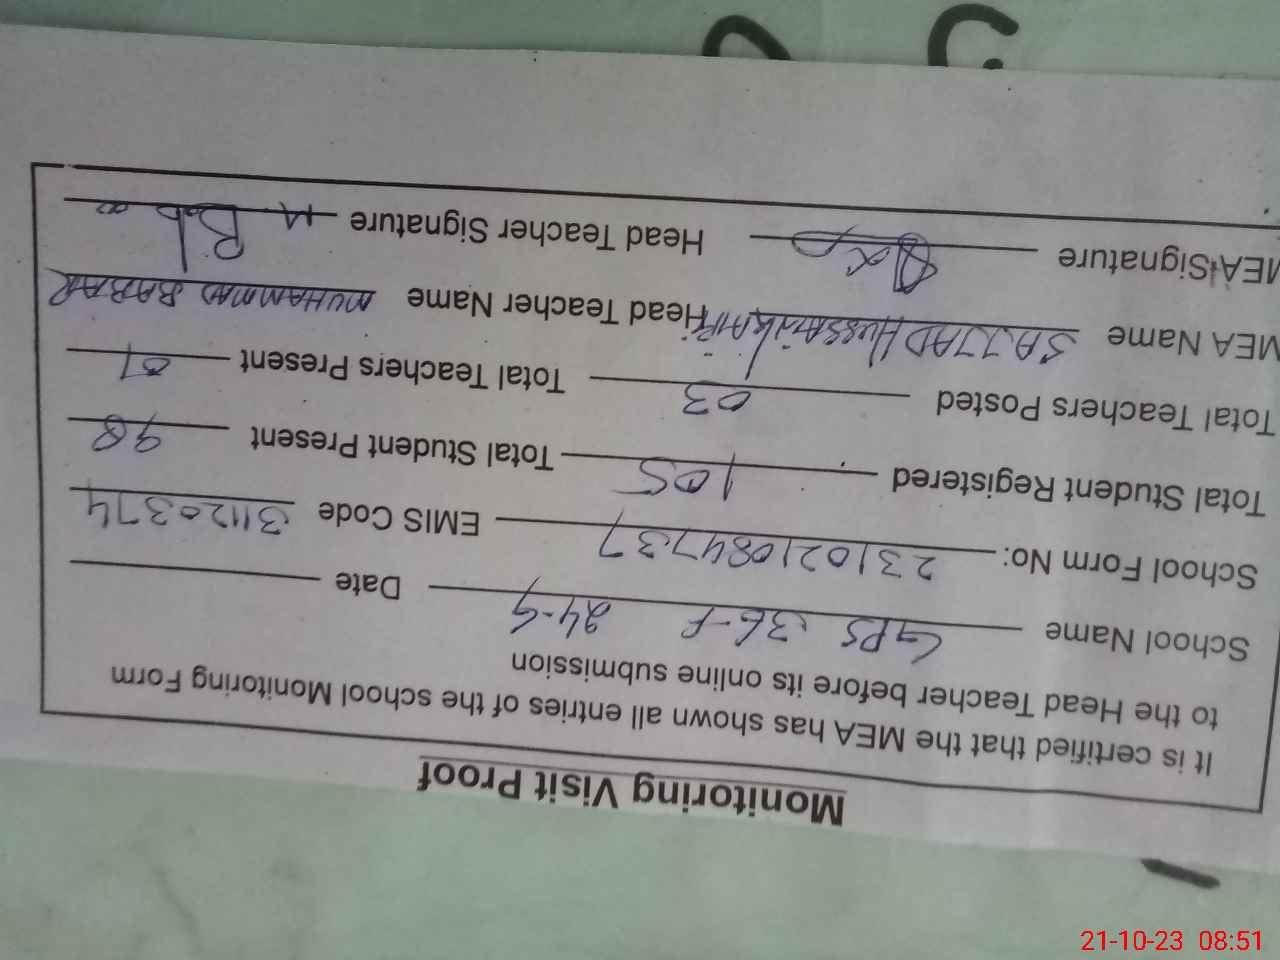 Monitoring Visit Proof
It is certified that the MEA has shown all entries of the school Monitoring Form
to the Head Teacher before its online submission
School Name GPS 36-F Date
School Form No: 231021084737 EMIS Code 31120374
Total Student Registered 105 Total Student Present 98
Total Teachers Posted 03 Total Teachers Present
MEA Name SAJJAD HUSSAIN Head Teacher Name MUHAMMAD BABAR
MEA Signature Head Teacher Signature
21-10-23 08:51